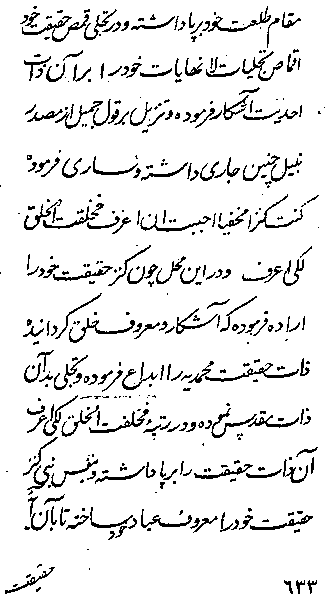 مقام طلعت خود برپا داشته و در تجلی قمص حقیقت خود
اقماص تجلیات لا نهایات خود را بر آن ذات
احدیت آشکار فرموده و تنزیل بر قول جمیل از مصدر
نبیل چنین جاری داشته و ساری فرموده
کنت کنزا مخفیا احببت ان اعرف فخلقت الخلق
لکی اعرف و در این محل چون کنز حقیقت خود را
اراده فرموده که آشکار و معروف خلق گرداند
ذات حقیقت محمدیه را ابداع فرموده و تجلی بدآن
ذات مقدس نموده و در رتبهٔ فخلقت الخلق لکی اعرف
آن ذات حقیقت را برپا داشته و بنفس نبی کنز
حقیقت خود را معروف عباد خود ساخته تا بآن
حقیقت
٦٣٣